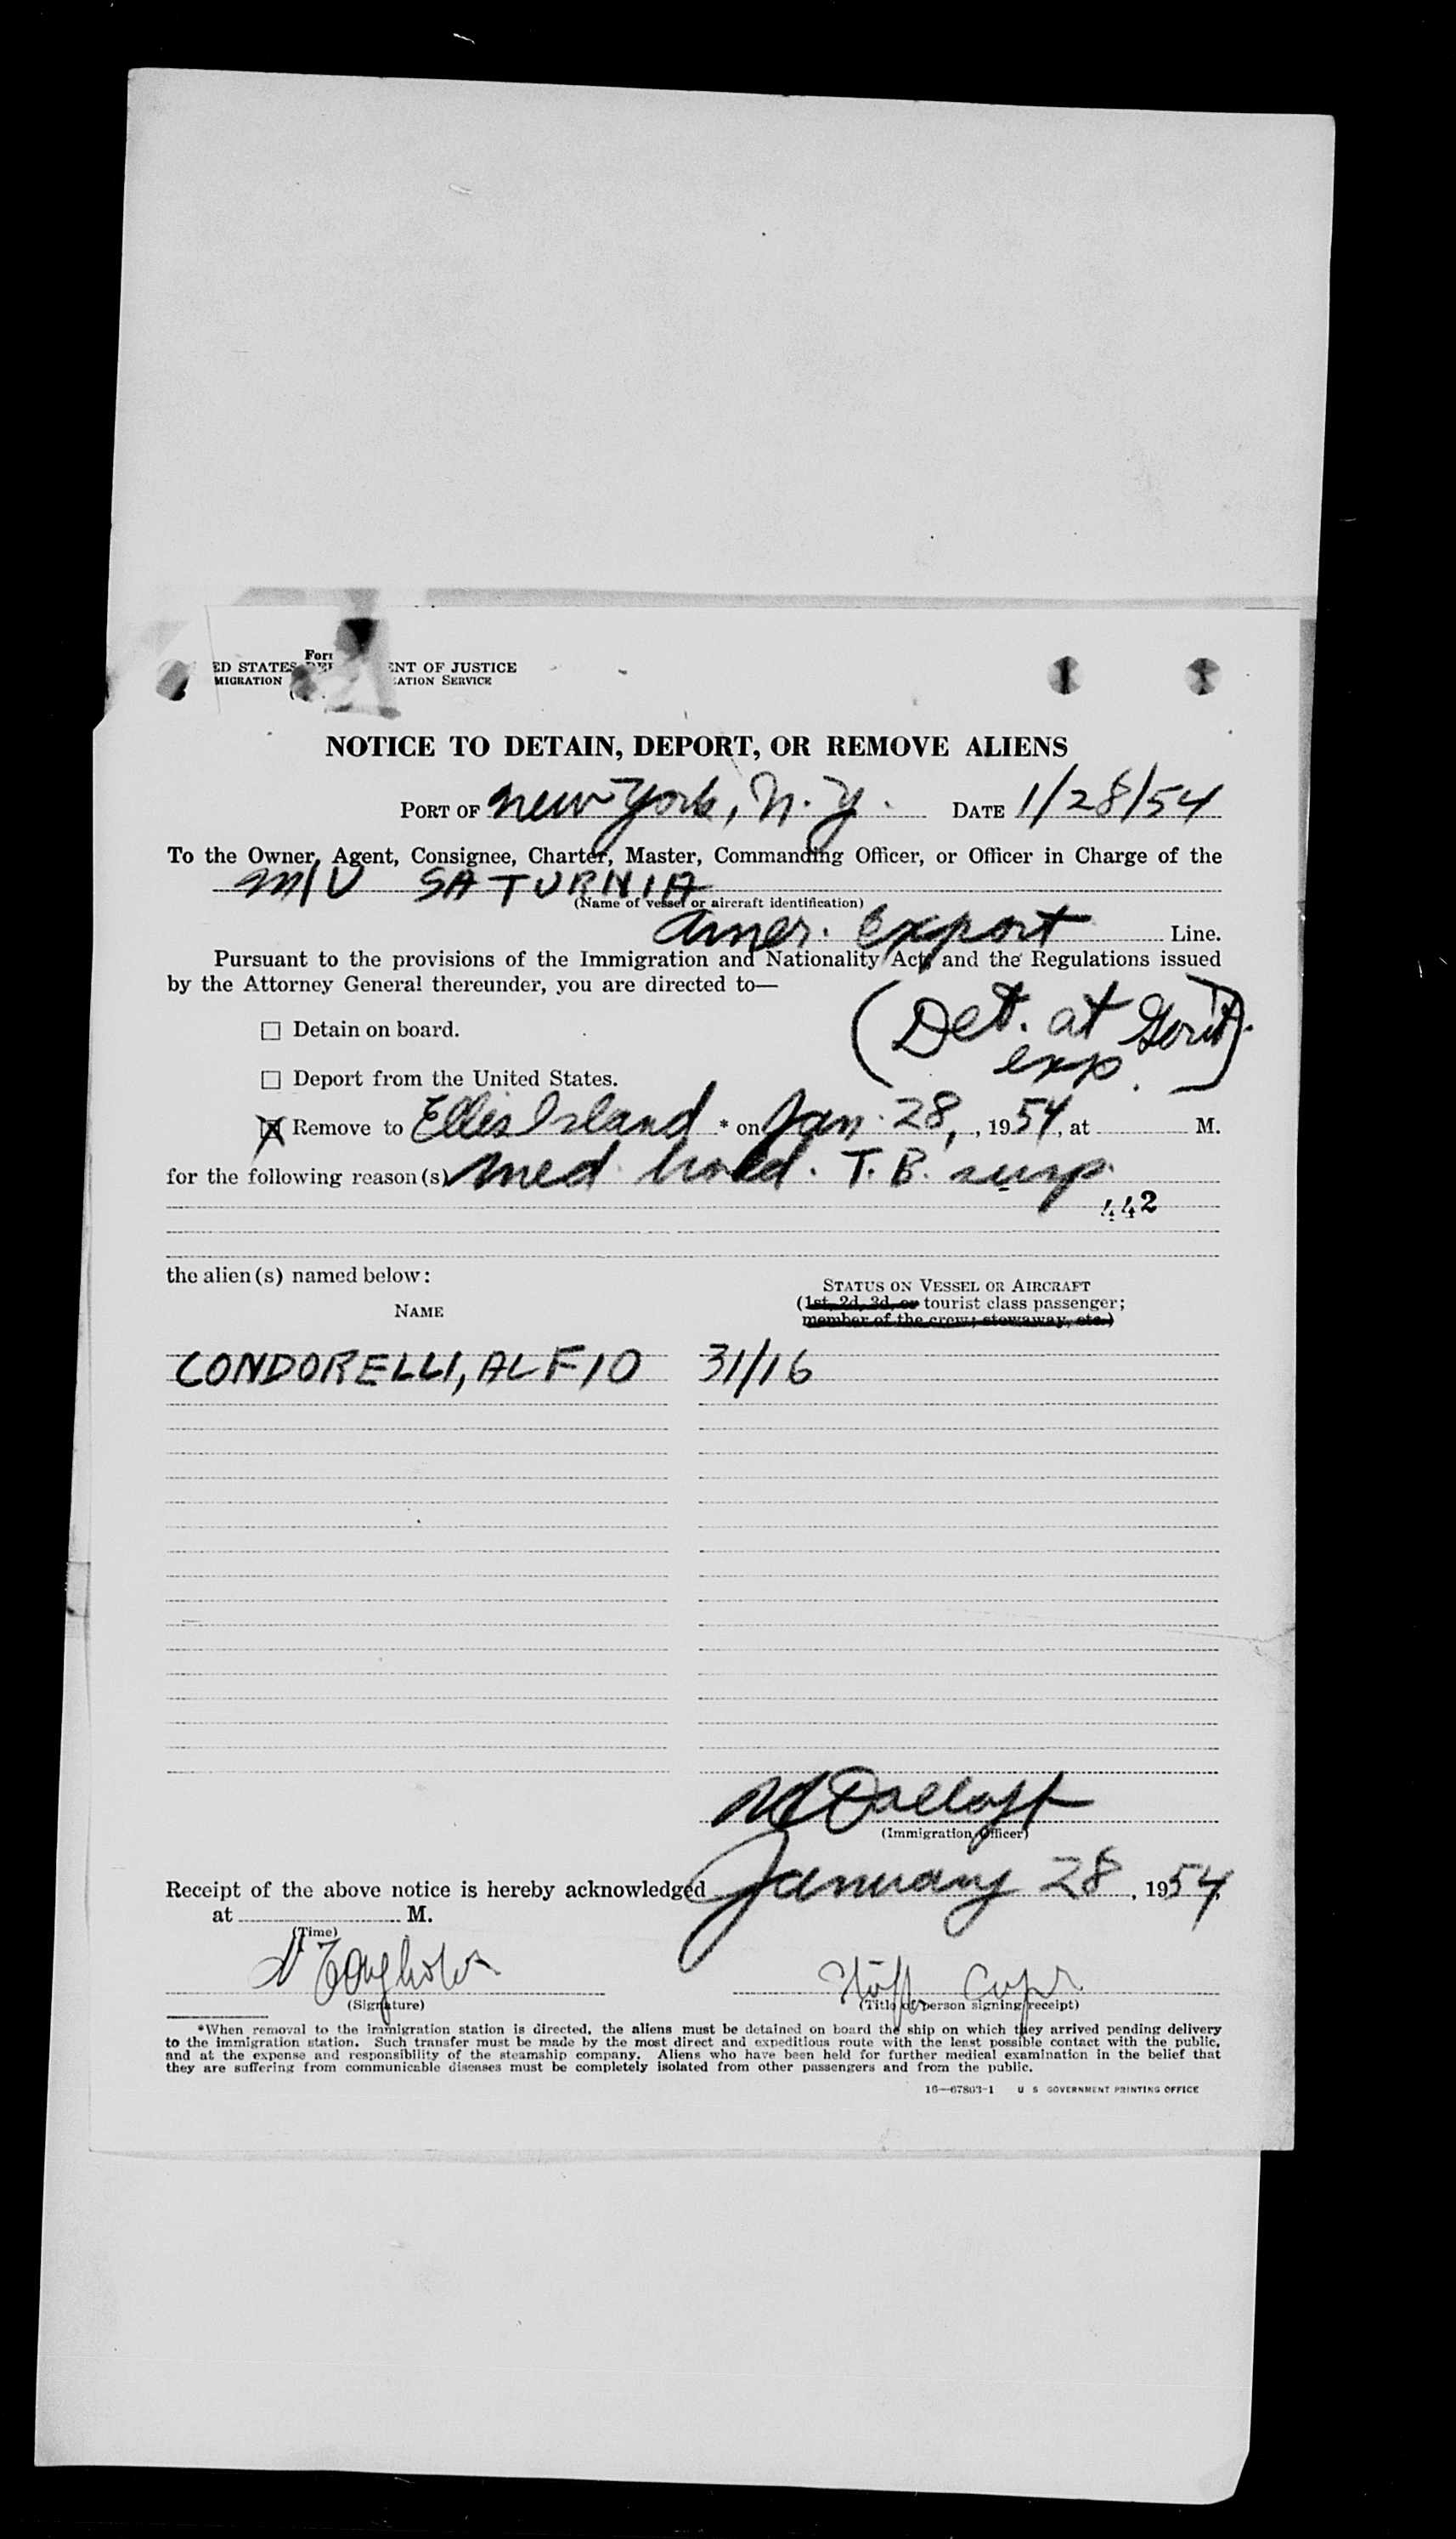 For
ED STATES DE ENT OF JUSTICE
MIGRATION ATION SERVICE
NOTICE TO DETAIN, DEPORT, OR REMOVE ALIENS
PORT OF New York, N. Y. DATE 1/28/54
To the Owner, Agent, Consignee, Charter, Master, Commanding Officer, or Officer in Charge of the
M/V SATURNIA
(Name of vessel or aircraft identification)
Amer. Export Line.
Pursuant to the provisions of the Immigration and Nationality Act, and the Regulations issued
by the Attorney General thereunder, you are directed to—
(Det. at Govt.
exp.)
☐ Detain on board.
☐ Deport from the United States.
☒ Remove to Ellis Island * on Jan. 28, , 1954, at M.
for the following reason(s) Med hold. T. B. susp.
442
the alien(s) named below:
STATUS ON VESSEL OR AIRCRAFT
NAME (1st, 2d, 3d, or tourist class passenger;
member of the crew; stowaway, etc.)
CONDORELLI, ALFIO 31/16
(Immigration Officer)
Receipt of the above notice is hereby acknowledged January 28, 1954,
at M.
(Time)
(Signature) (Title of person signing receipt)
*When removal to the immigration station is directed, the aliens must be detained on board the ship on which they arrived pending delivery
to the immigration station. Such transfer must be made by the most direct and expeditious route with the least possible contact with the public,
and at the expense and responsibility of the steamship company. Aliens who have been held for further medical examination in the belief that
they are suffering from communicable diseases must be completely isolated from other passengers and from the public.
16—67803-1 U S GOVERNMENT PRINTING OFFICE